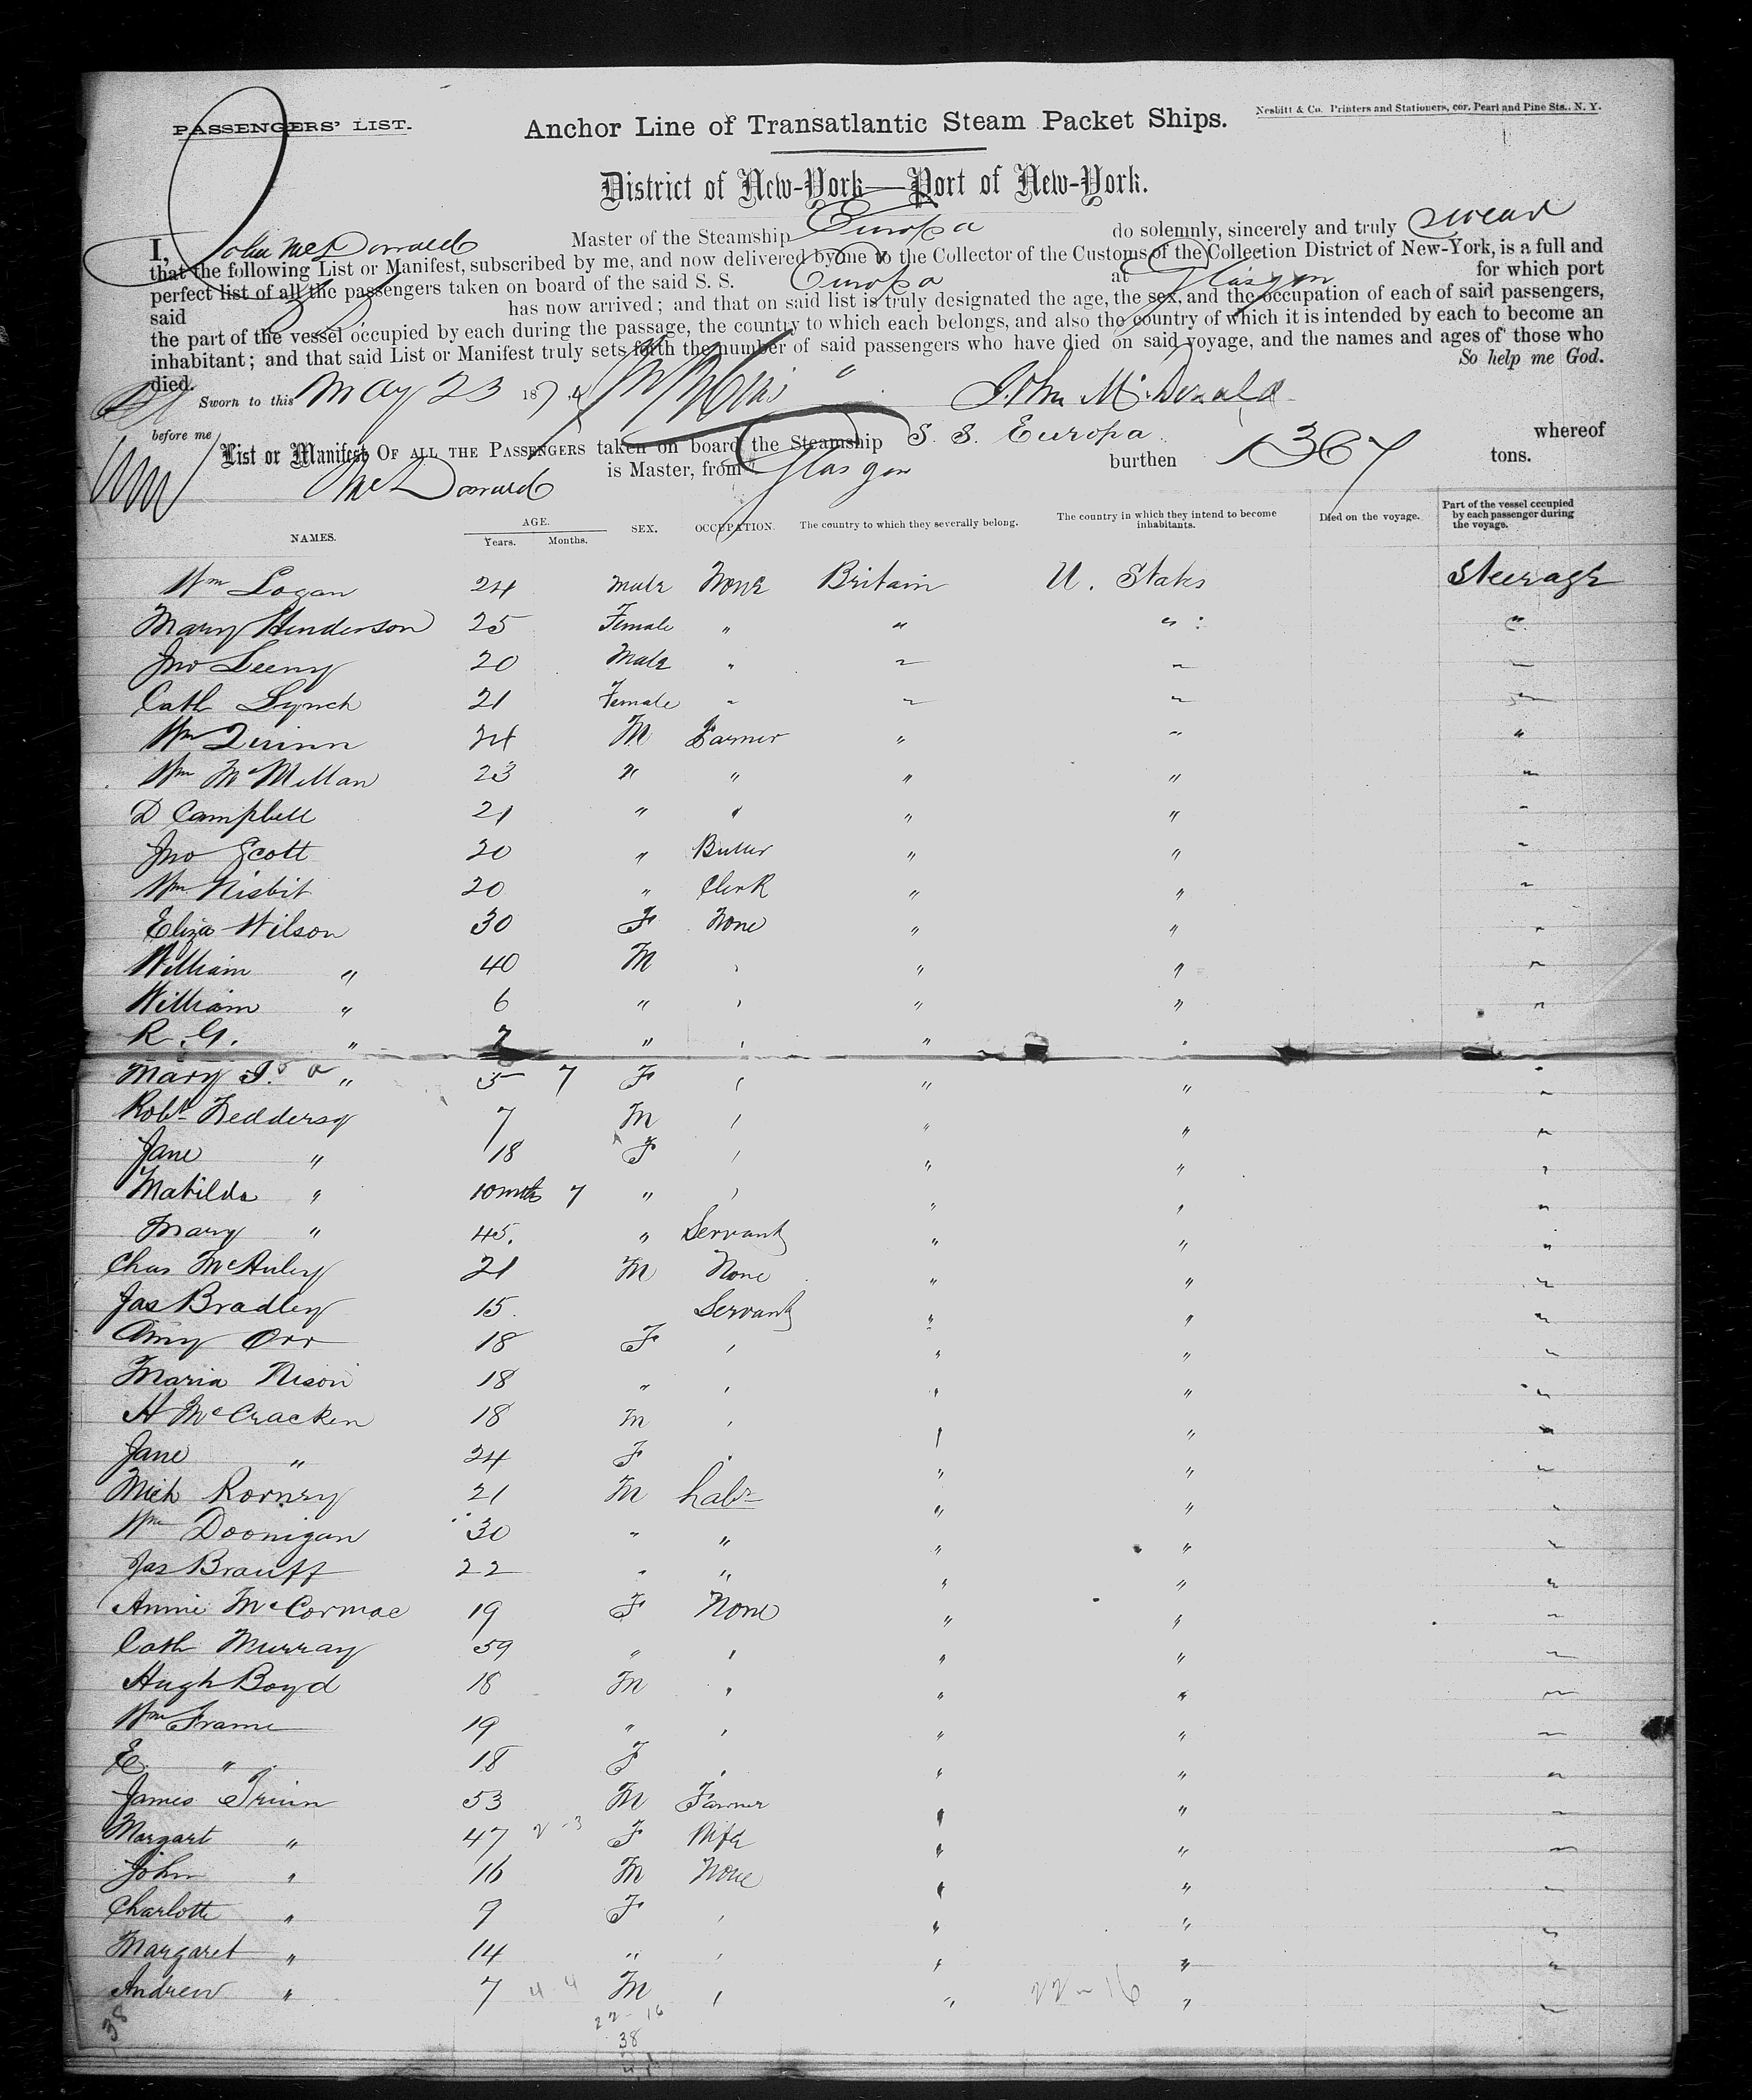 PASSENGERS' LIST.
Anchor Line of Transatlantic Steam Packet Ships.
Nesbitt & Co. Printers and Stationers, cor. Pearl and Pine Sts., N. Y.
District of New-York—Port of New-York.
I, John McDonald Master of the Steamship Europa do solemnly, sincerely and truly swear
that the following List or Manifest, subscribed by me, and now delivered by me to the Collector of the Customs of the Collection District of New-York, is a full and
perfect list of all the passengers taken on board of the said S. S. Europa at Glasgow for which port
said has now arrived; and that on said list is truly designated the age, the sex, and the occupation of each of said passengers,
the part of the vessel occupied by each during the passage, the country to which each belongs, and also the country of which it is intended by each to become an
inhabitant; and that said List or Manifest truly sets forth the number of said passengers who have died on said voyage, and the names and ages of those who
died. So help me God.
Sworn to this May 23 187 John McDonald
before me
List or Manifest OF ALL THE PASSENGERS taken on board the Steamship S. S. Europa whereof
McDonald is Master, from Glasgow burthen 1367 tons.
NAMES. AGE. Years. Months. SEX. OCCUPATION. The country to which they severally belong. The country in which they intend to become inhabitants. Died on the voyage. Part of the vessel occupied by each passenger during the voyage.
Wm Logan 24 Male None Britain U. States Steerage
Mary Henderson 25 Female " " " "
Jno 20 Male " " " "
Cath Lynch 21 Female " " " "
Wm Quinn 24 M Farmer " " "
Wm McMillan 23 " " " " "
D Campbell 21 " " " " "
Jno Scott 20 " Butler " " "
Wm Nisbit 20 " Clerk " " "
Eliza Wilson 30 F None " " "
William " 40 M " " " "
William " 6 " " " " "
R. G. " " " " " "
Mary " 7 F " " " "
Robt 7 M " " " "
Jane " 18 F " " " "
Matilda " 10 mths 7 " " " " "
Mary " 45. " Servant " " "
Chas McAuley 21 M None " " "
Jas Bradley 15. Servant " " "
Amy Orr 18 F " " " "
Maria 18 " " " " "
H McCracken 18 M " " " "
Jane " 24 F " " " "
Mich Rooney 21 M Labr " " "
Wm Doonigan 30 " " " " "
Jas 22 " " " " "
Annie McCormac 19 F None " " "
Cath Murray 59 " " " " "
Hugh Boyd 18 M " " " "
Wm Frame 19 " " " " "
E. " 18 F " " " "
James 53 M Farmer " " "
Margart " 47 F Wife " " "
John " 16 M None " " "
Charlotte " 9 F " " " "
Margaret " 14 " " " " "
Andrew " 7 4 4 M " " 22-16 " "
38
22-16
38